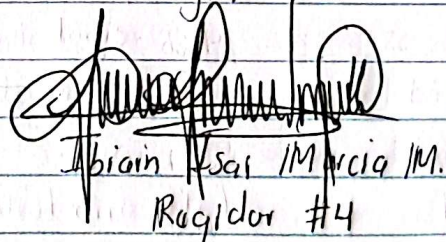 Ibrain Isai Marcia M.
Regidor #4